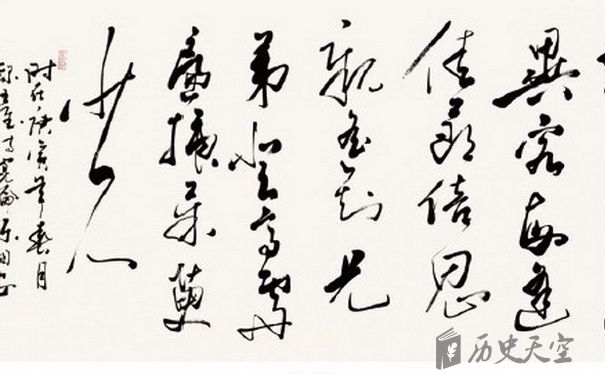 異客每逢
佳節倍思
親遙知兄
弟登高處
遍插茱萸
少一人
时在庚寅年春月
历史天空